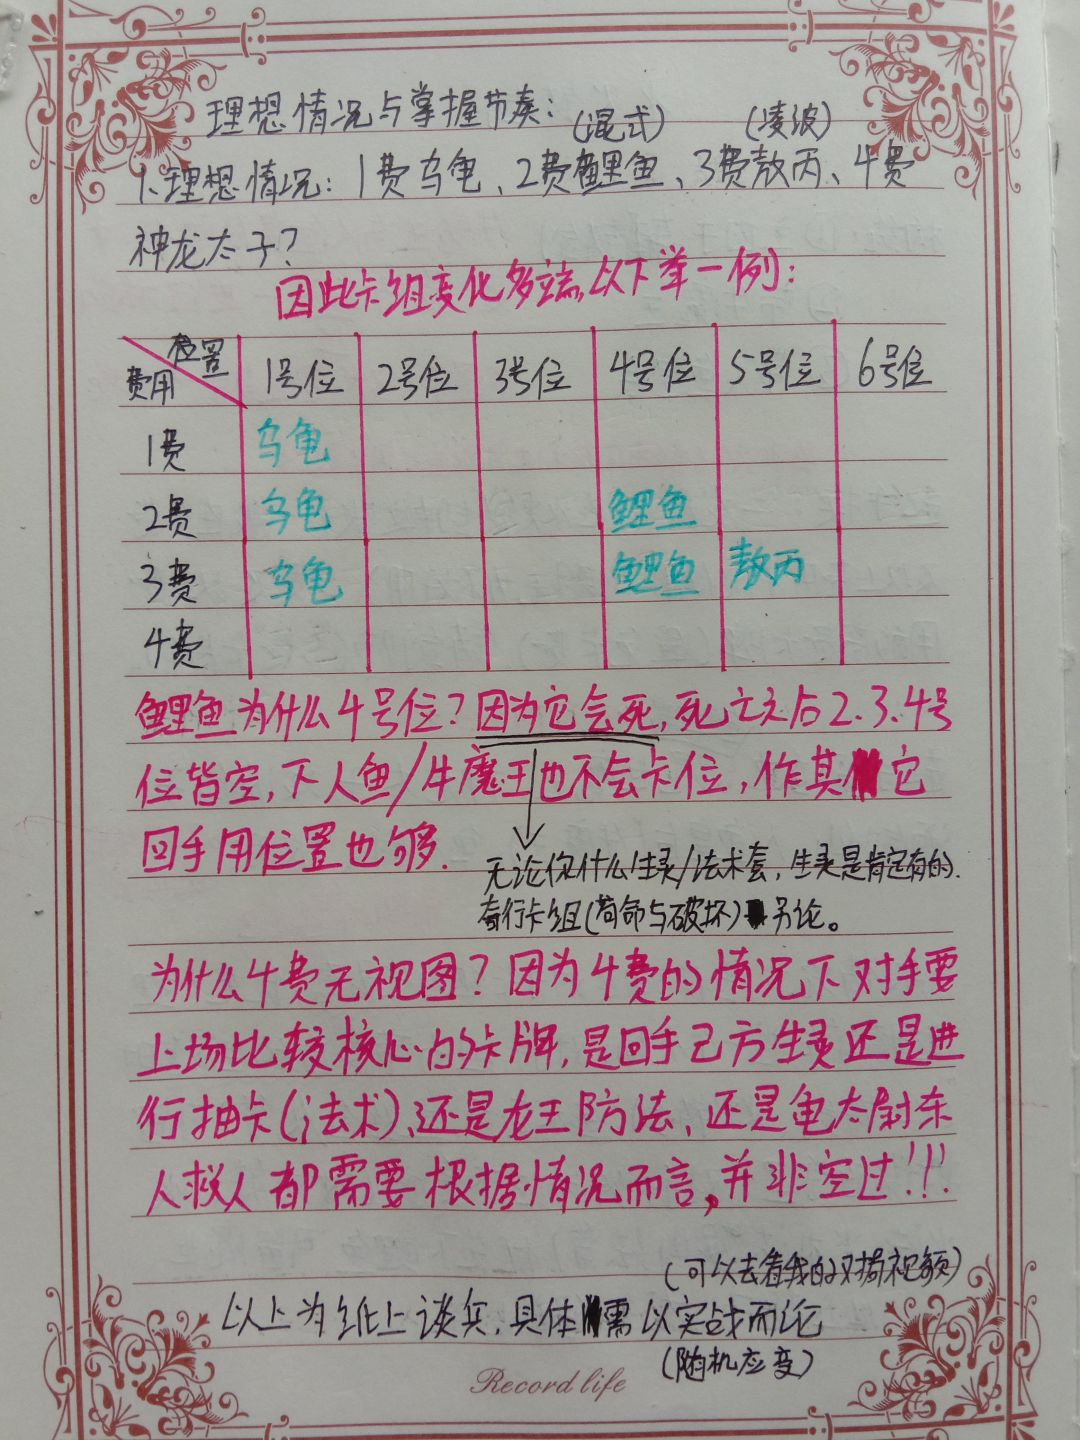 理想情况与掌握节奏：(混式) (凌波)
1、理想情况：1费乌龟、2费鲤鱼、3费敖丙、4费
神龙太子？
因此卡组变化多端，以下举一例：
位置
费用 1号位 2号位 3号位 4号位 5号位 6号位
1费 乌龟
2费 乌龟 鲤鱼
3费 乌龟 鲤鱼 敖丙
4费
鲤鱼为什么4号位？因为它会死，死亡之后2.3.4号
位皆空，下人鱼/牛魔王也不会卡位，作其它
回手用位置也够.
无论你什么生灵/法术套，生灵是肯定有的.
奇行卡组(苟命与破坏)另论。
为什么4费无视图？因为4费的情况下对手要
上场比较核心的卡牌，是回手己方生灵还是进
行抽卡(法术)、还是龙王防法、还是龟太尉东
人救人都需要根据情况而言，并非空过!!!
(可以去看我的对局视频)
以上为纸上谈兵，具体需以实战而论
(随机应变)
Record life